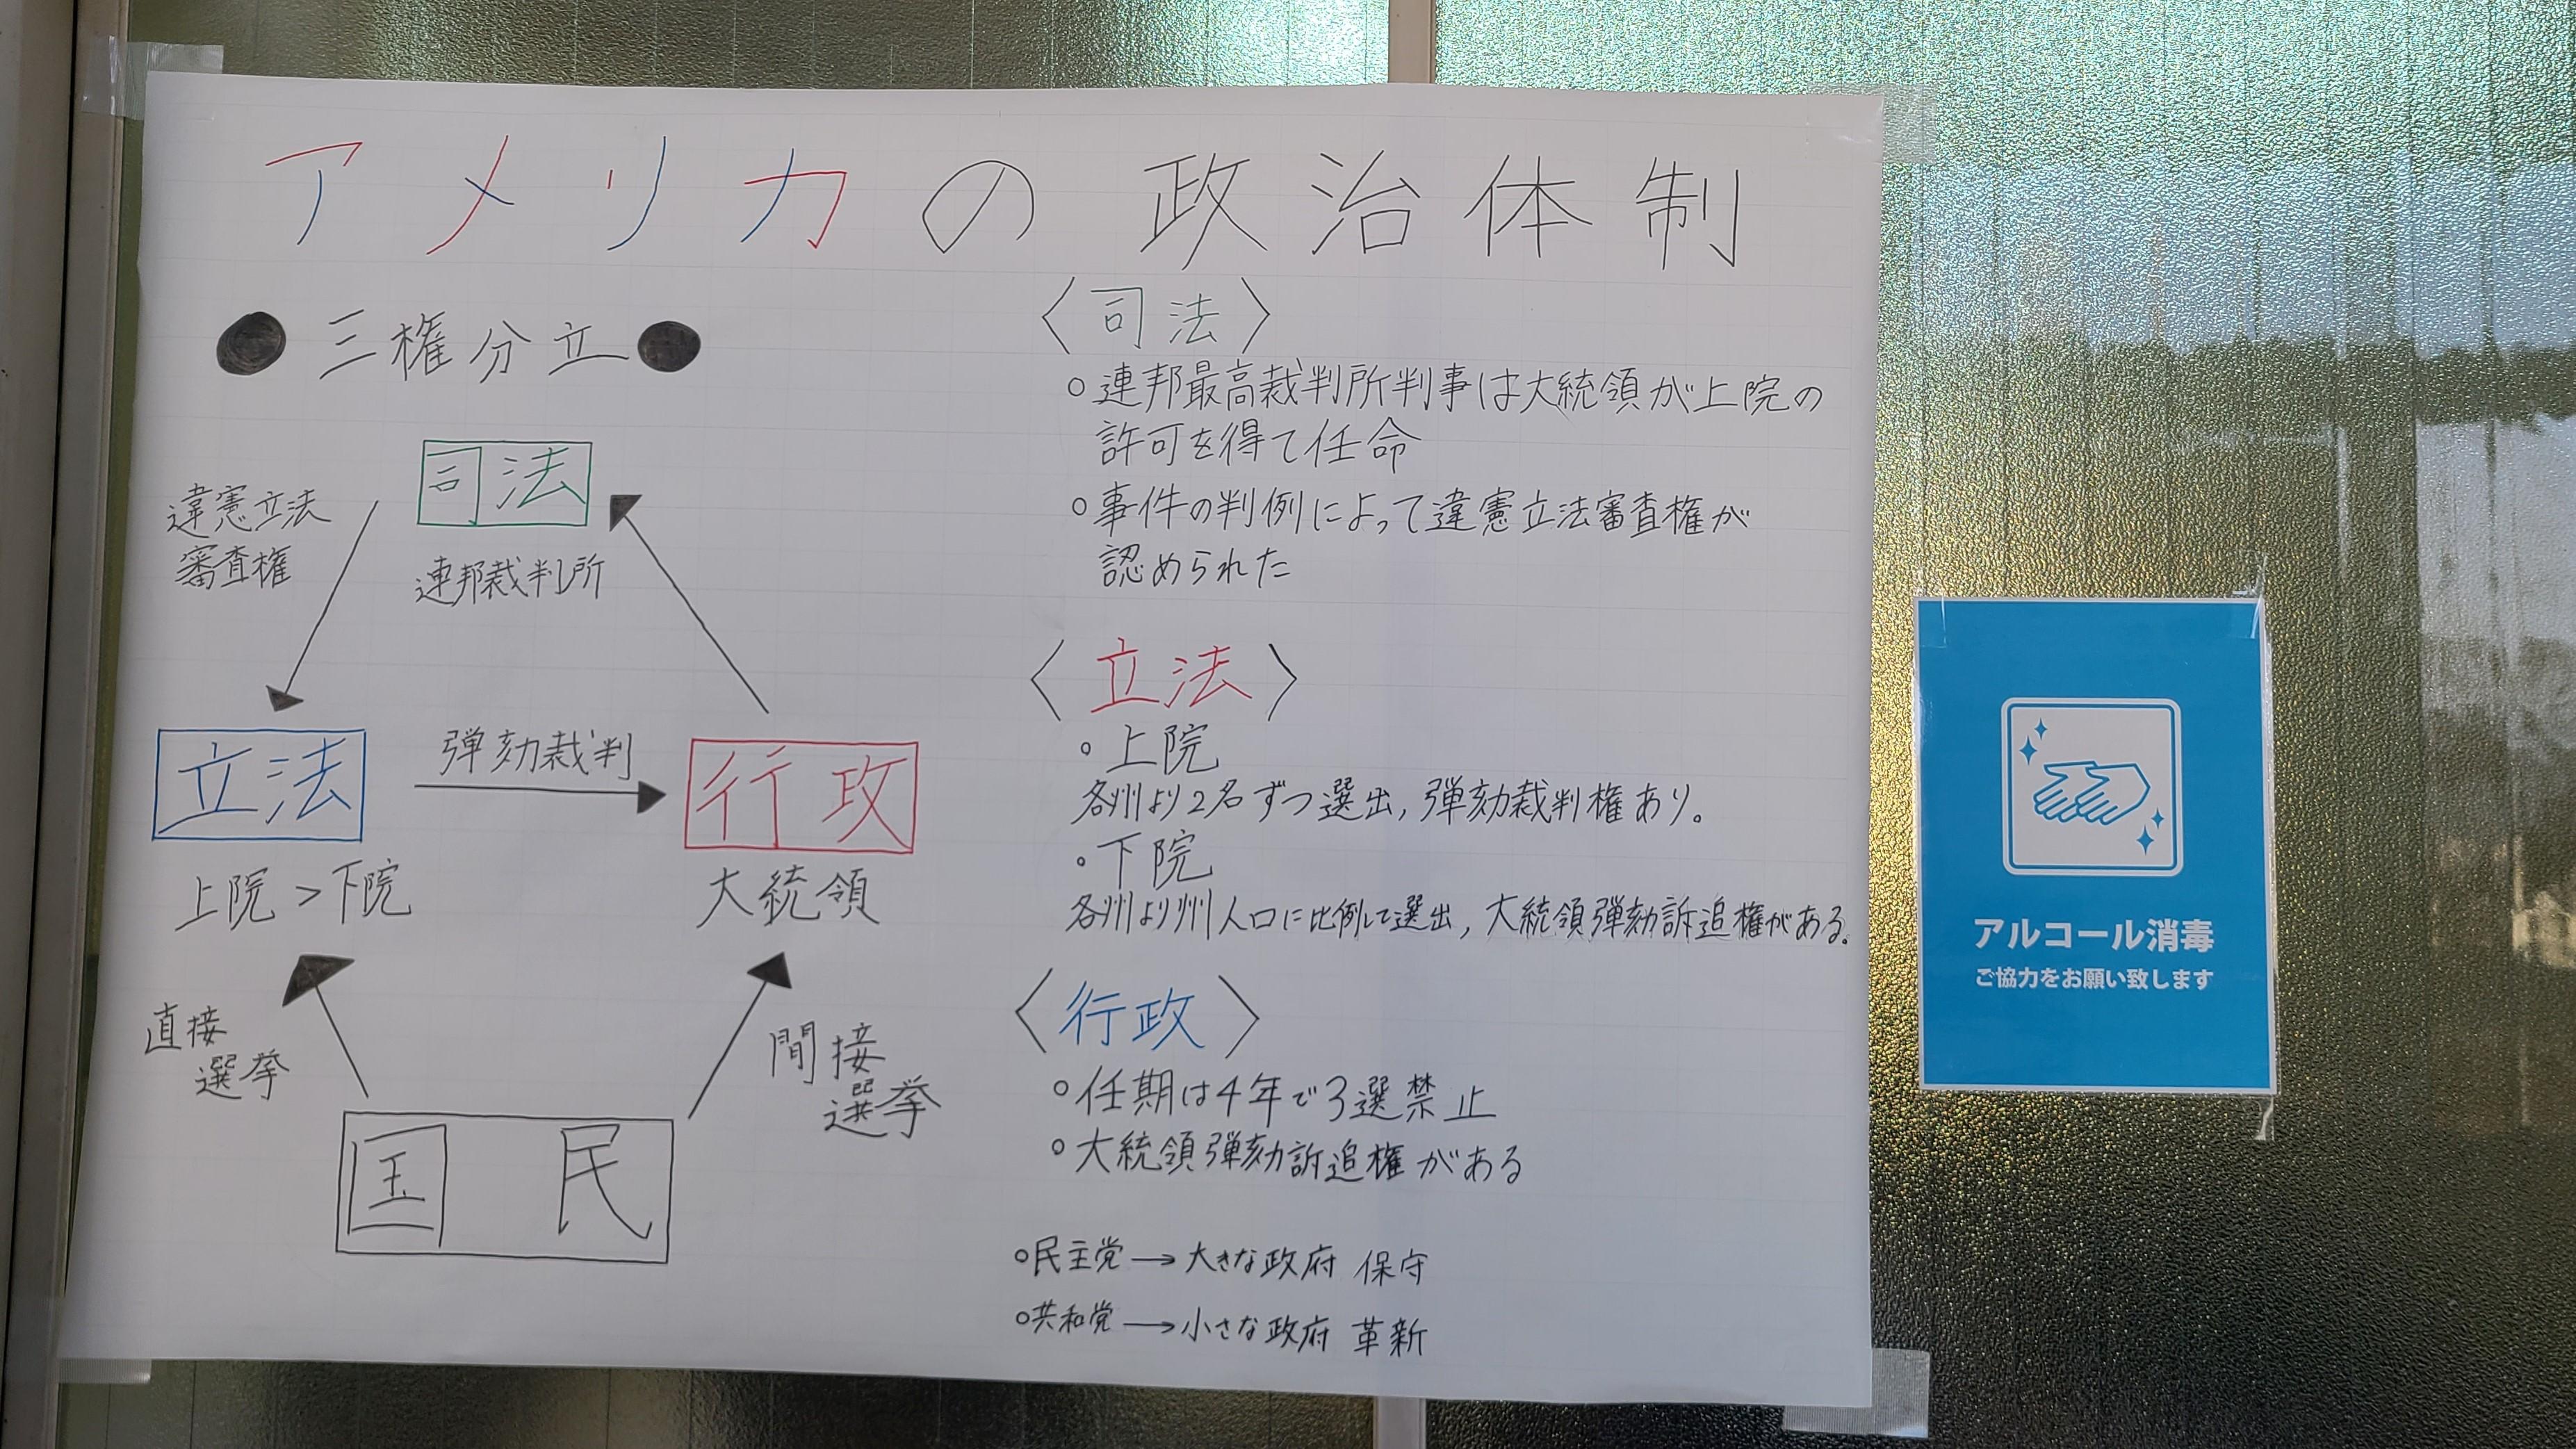 アメリカの政治体制
●三権分立●
司法
連邦裁判所
違憲立法
審査権
立法
上院>下院
弾劾裁判
行政
大統領
直接
選挙
間接
選挙
国民
〈司法〉
○連邦最高裁判所判事は大統領が上院の
許可を得て任命
○事件の判例によって違憲立法審査権が
認められた
〈立法〉
○上院
各州より2名ずつ選出,弾劾裁判権あり。
○下院
各州より州人口に比例して選出,大統領弾劾訴追権がある。
〈行政〉
○任期は4年で3選禁止
○大統領弾劾訴追権がある
○民主党→大きな政府 保守
○共和党→小さな政府 革新
アルコール消毒
ご協力をお願い致します